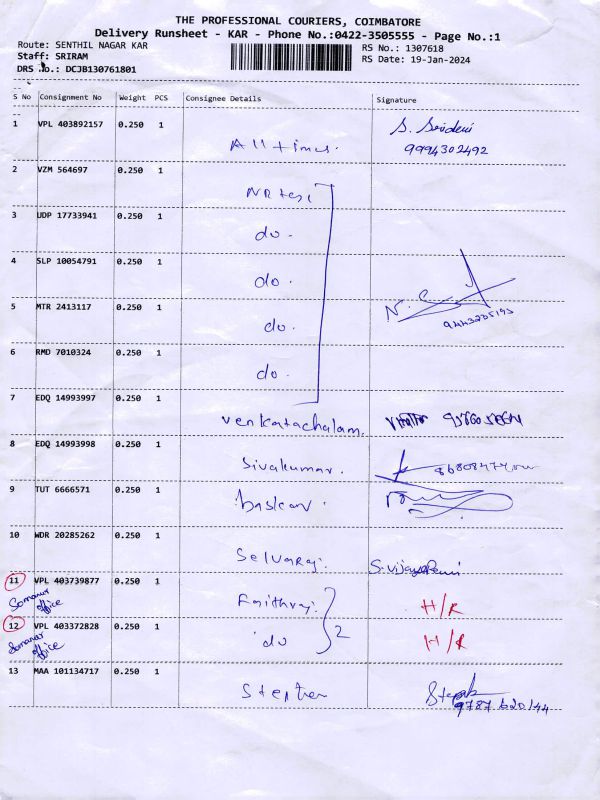 THE PROFESSIONAL COURIERS, COIMBATORE
Delivery Runsheet - KAR - Phone No.:0422-3505555 - Page No.:1
Route: SENTHIL NAGAR KAR
RS No.: 1307618
Staff: SRIRAM
RS Date: 19-Jan-2024
DRS No.: DCJB130761801
S No Consignment No Weight PCS Consignee Details Signature
1 VPL 403892157 0.250 1 All times. S. Sridevi
9994302492
2 VZM 564697 0.250 1
3 UDP 17733941 0.250 1 do.
4 SLP 10054791 0.250 1 do.
5 MTR 2413117 0.250 1 do. N.
6 RMD 7010324 0.250 1 do.
7 EDQ 14993997 0.250 1 Venkatachalam.
8 EDQ 14993998 0.250 1 Sivakumar.
9 TUT 6666571 0.250 1 baskar.
10 WDR 20285262 0.250 1 Selvaraj.
11 VPL 403739877 0.250 1 Faithraj. H/R
Somanur office
12 VPL 403372828 0.250 1 do 2 H/R
Somanur office
13 MAA 101134717 0.250 1 Stephen